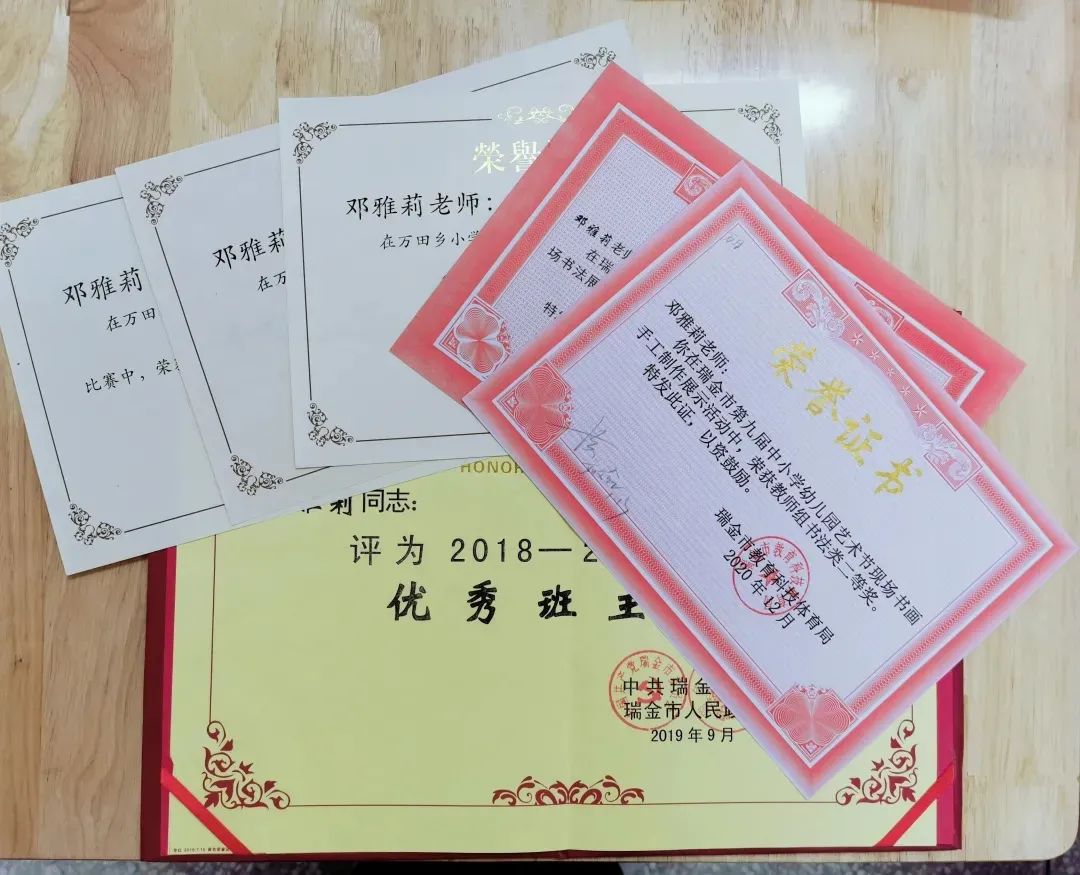 邓雅莉
在万田
比赛中，荣
邓雅莉
在万
榮譽
邓雅莉老师：
在万田乡小学
邓雅莉老师
在瑞
场书法展
特
荣誉证书
邓雅莉老师，
你在瑞金市第九届中小学幼儿园艺术节现场书画
手工制作展示活动中，荣获教师组书法类二等奖。
特发此证，以资鼓励。
瑞金市教育科技体育局
2020年12月
HONOR
莉同志：
评为 2018—2
优秀班主
中共瑞金
瑞金市人民政
2019年9月